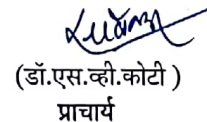 (डॉ.एस.व्ही.कोटी )
प्राचार्य